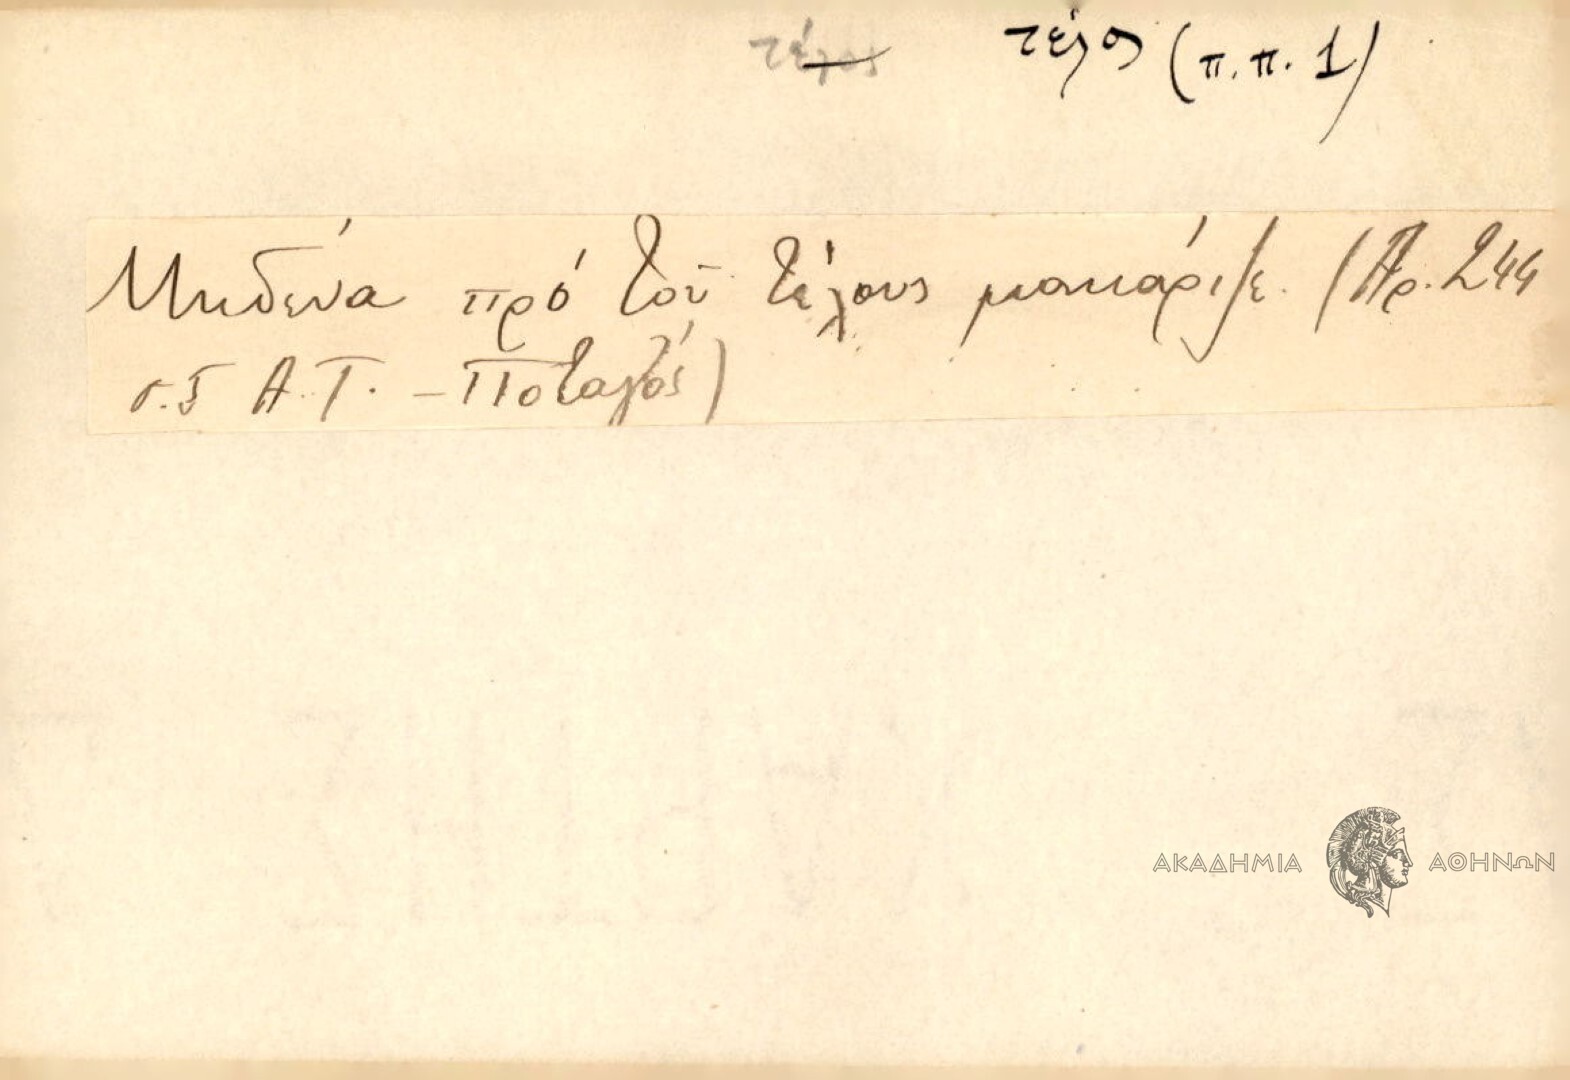 τέλος τέλος (π.π. 1)
Μηδένα πρό τοῦ τέλους μακάριζε. (Ἀρ. 244
σ.5 Α.Τ. - Ποταγός)
ΑΚΑΔΗΜΙΑ ΑΘΗΝΩΝ